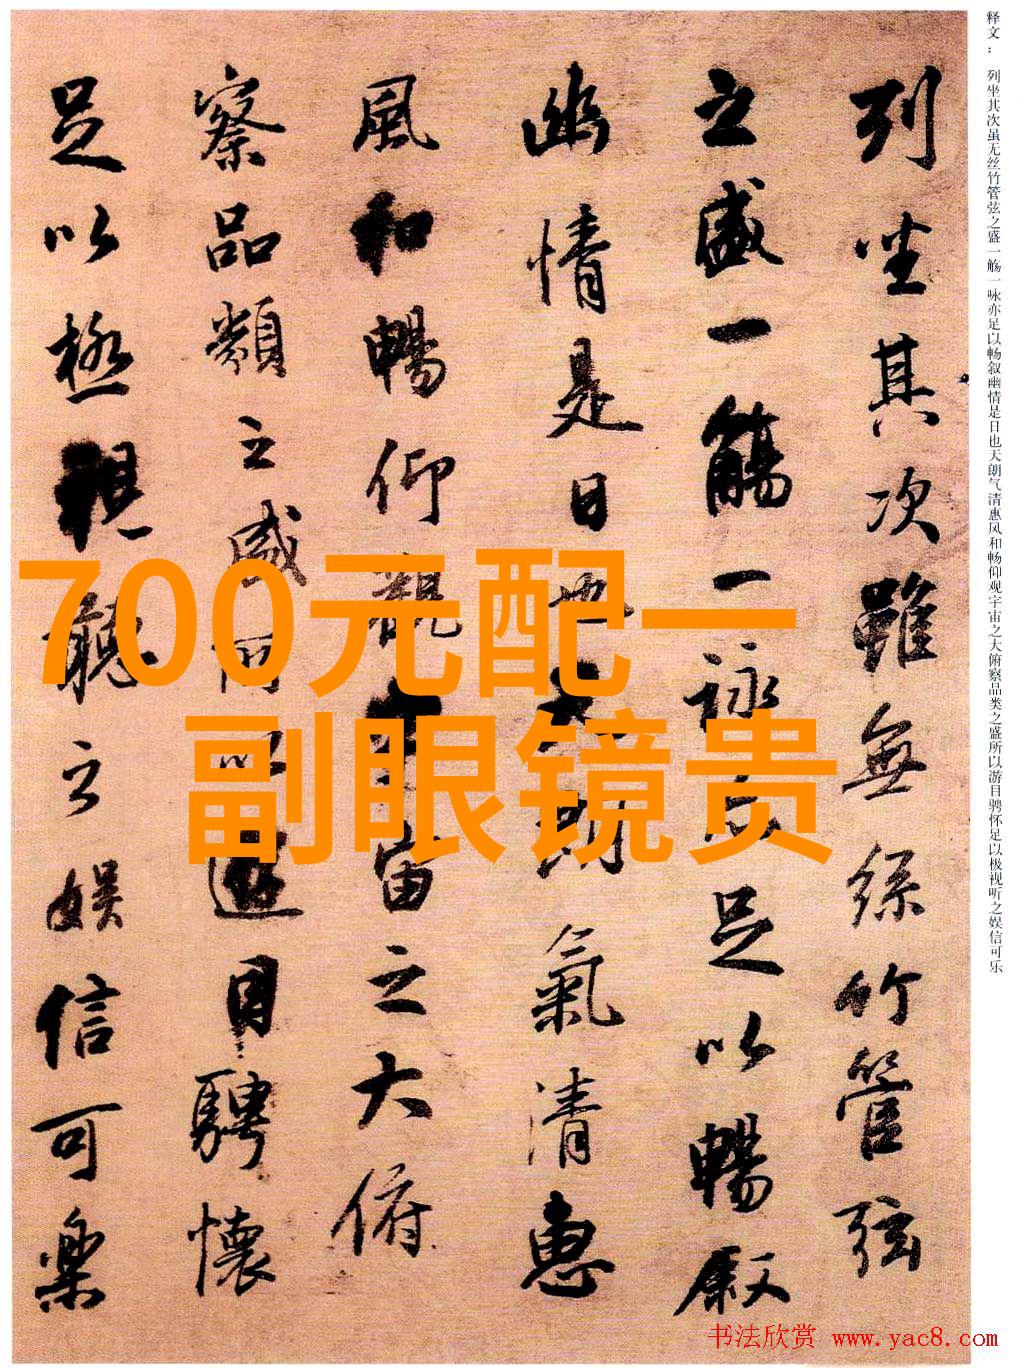 释文：列坐其次虽无丝竹管弦之盛一觞一咏亦足以畅叙幽情是日也天朗气清惠风和畅仰观宇宙之大俯察品类之盛所以游目骋怀足以极视听之娱信可乐
列坐其次雖無絲竹管弦
之盛一觴一詠亦足以暢叙
幽情是日也天朗氣清惠
風和暢仰觀宇宙之大俯
察品類之盛所以遊目騁懷
足以極視聽之娱信可樂
700元配一
副眼镜贵
书法欣赏 www.yac8.com